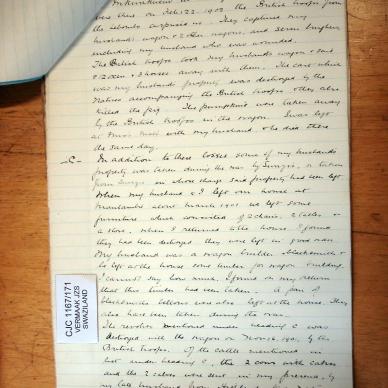 were there on Feb. 22. 1902 the British troops from
the column surprised us. They captured my
husband's wagon & 2 other wagons, and seven burghers
including my husband who was wounded.
The British troops took my husband's wagon & sent
12 oxen & 3 horses away with them. The cart which
was my husband's property was destroyed by the
Natives accompanying the British troops who also
killed the pig. The pumpkins were taken away
by the British troops in the wagon. I was left
at with my husband, who died there
the same day.
-C- In addition to these losses some of my husband's
property was taken during the war by Swazis, or taken
from Swazis in whose charge said property had been left
When my husband & I left our house at
about March 1901 we left some
furniture which consisted of 2 chairs, 2 tables, &
a stove. When I returned to the house I found
they had been destroyed they were left in good
My husband was a wagon builder & blacksmith &
he left at the house some timber for wagon building.
I cannot say how much. I found on my return
that this timber had been taken. A pair of
blacksmith's bellows was also left at the house. They
also have been taken during the war.
The revolver mentioned under heading C was
destroyed with the wagon on 1901, by the
British Troops. Of the cattle mentioned in
list under heading C, the 2 cows with calves
and the 2 calves were sent in my presence, by
my late husband from
CJC 1167/171
VERMAAK JZS
SWAZILAND